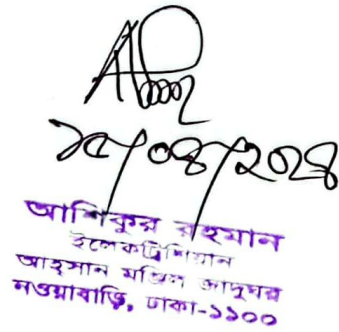 ১৫/০৪/২০২৪
আশিকুর রহমান
ইলেকট্রিশিয়ান
আহসান মঞ্জিল জাদুঘর
নওয়াবাড়ি, ঢাকা-১১০০